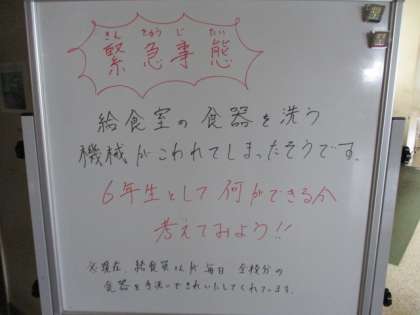 きん きゅう じ たい
緊急事態
給食室の食器を洗う
機械がこわれてしまったそうです。
6年生として何ができるか
考えてみよう!!
※現在、給食員さんが毎日全校分の
食器を手洗いできれいにしてくれています。